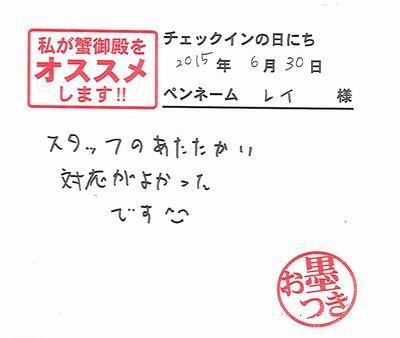 私が蟹御殿を
オススメ
します!!
チェックインの日にち
2015年 6月 30日
ペンネーム レイ 様
スタッフのあたたかい
対応がよかった
です
お墨つき